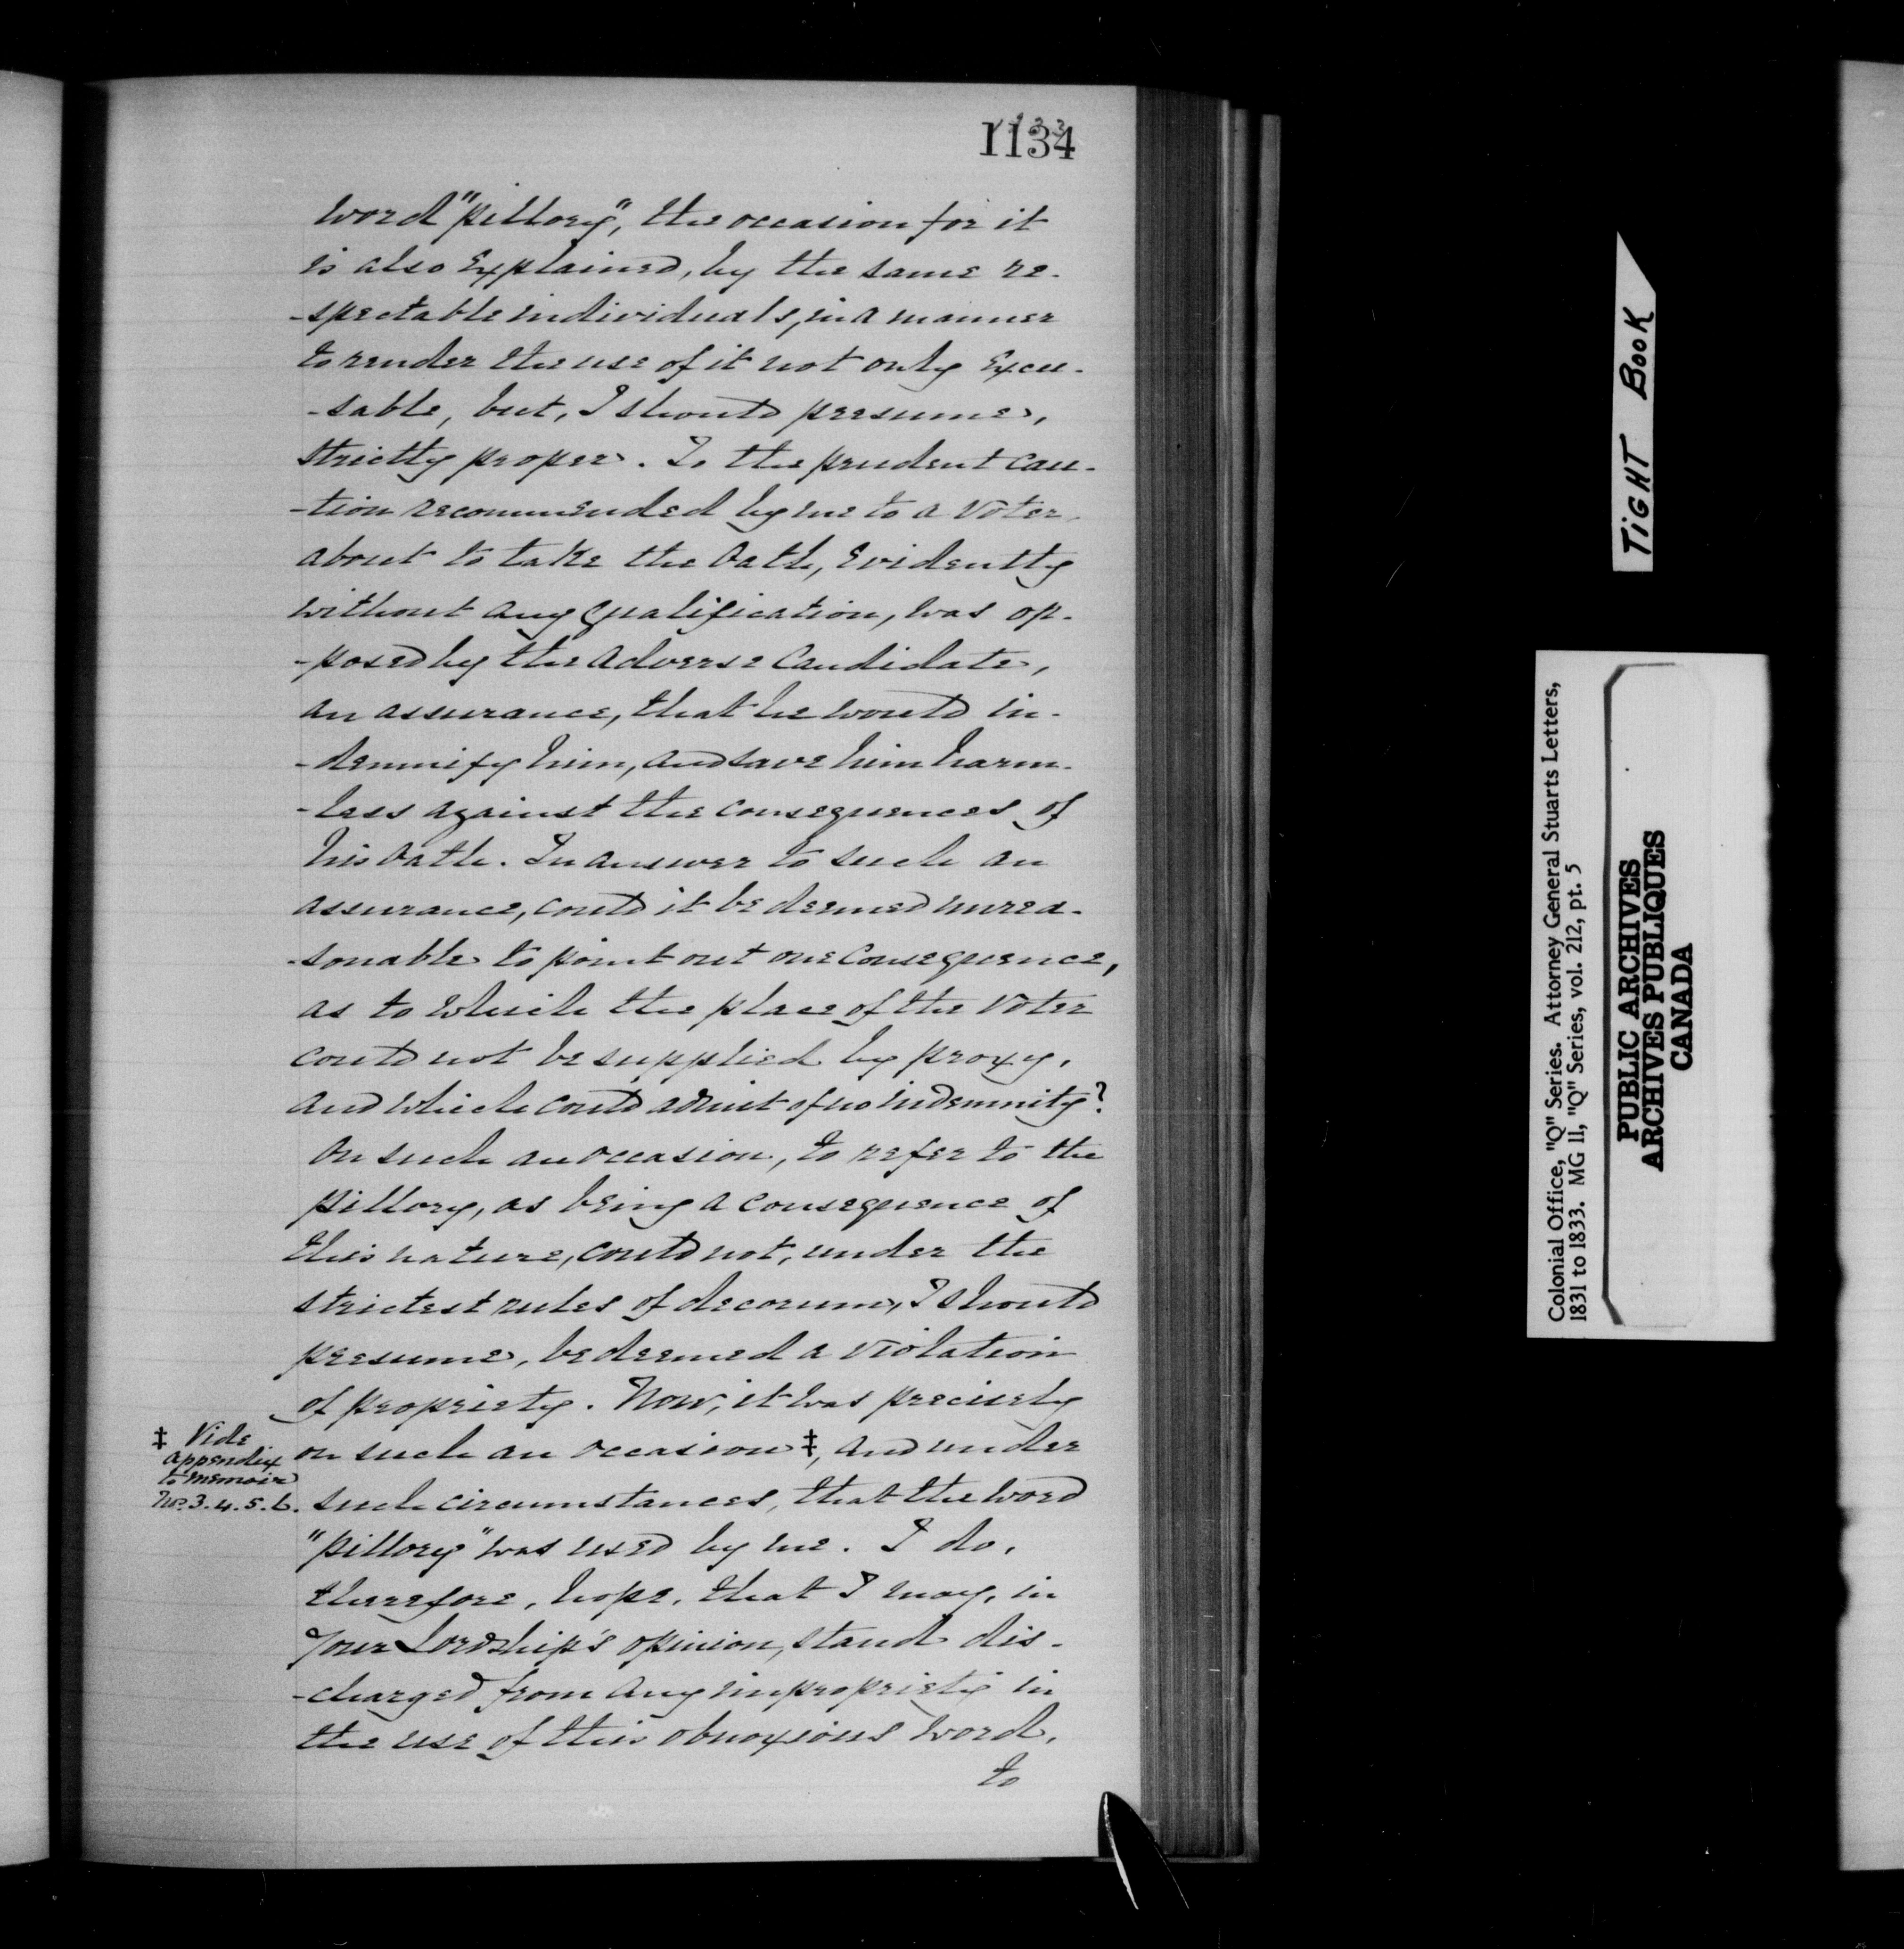 1134
word "pillory", the occasion for it
is also Explained, by the same re-
-spectable individuals, in a manner
to render the use of it not only Excu-
-sable, but, I should presume,
strictly proper. To the prudent cau-
-tion recommended by me to a Voter,
about to take the Oath, Evidently
without any Qualification, was op-
-posed by the Adverse Candidate,
an assurance, that he would in-
-demnify him, and save him harm-
-less against the consequences of
his Oath. In answer to such an
assurance, could it be deemed unrea-
-sonable to point out one Consequence,
as to which the place of the Voter
could not be supplied by proxy,
and which could admit of no indemnity?
On such an occasion, to refer to the
pillory, as being a consequence of
this nature, could not, under the
strictest rules of decorum, I should
presume, be deemed a violation
of propriety. Now, it was precisely
on such an occasion ‡, and under
such circumstances, that the word
"pillory" was used by me. I do,
therefore, hope, that I may, in
Your Lordship's opinion, stand dis-
-charged from any impropriety in
the use of this obnoxious word.
to
‡ Vide
Appendix
to memoir
No. 3. 4. 5. 6.
TIGHT BOOK
Colonial Office, "Q" Series. Attorney General Stuarts Letters,
1831 to 1833. MG 11, "Q" Series, vol. 212, pt. 5
PUBLIC ARCHIVES
ARCHIVES PUBLIQUES
CANADA